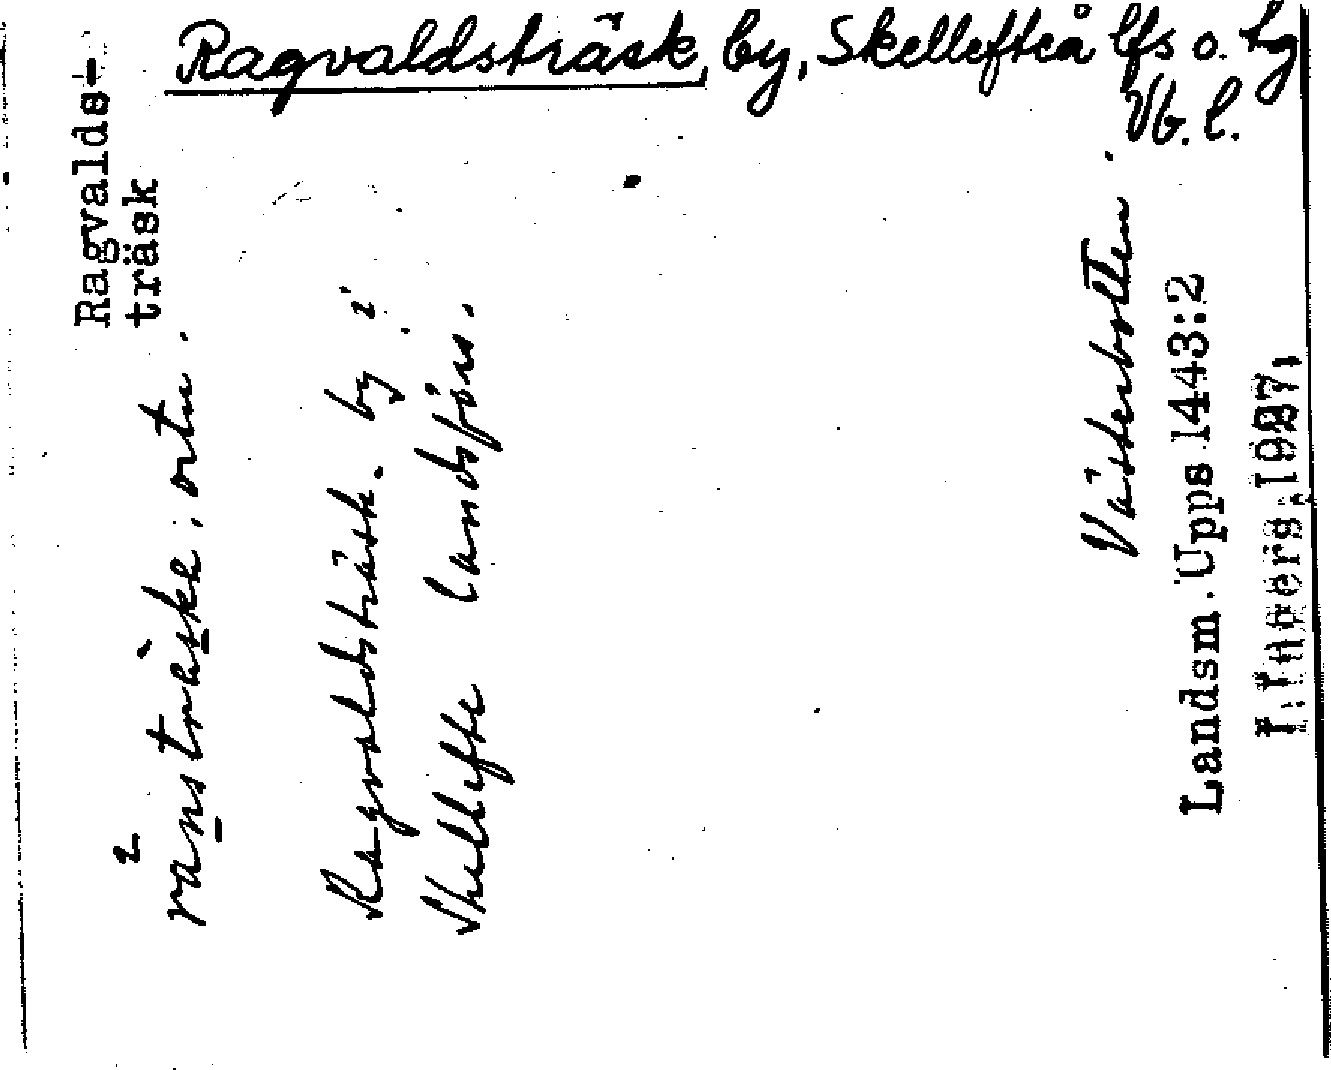 Ragvaldsträsk, by, Skellefteå lfs o. tg
Vb. l.
Ragvalds-
träsk
ortn.
Ragvaldsträsk. by i
Skellefte landsförs.
Västerbotten.
Landsm. Upps 1443:2
1927